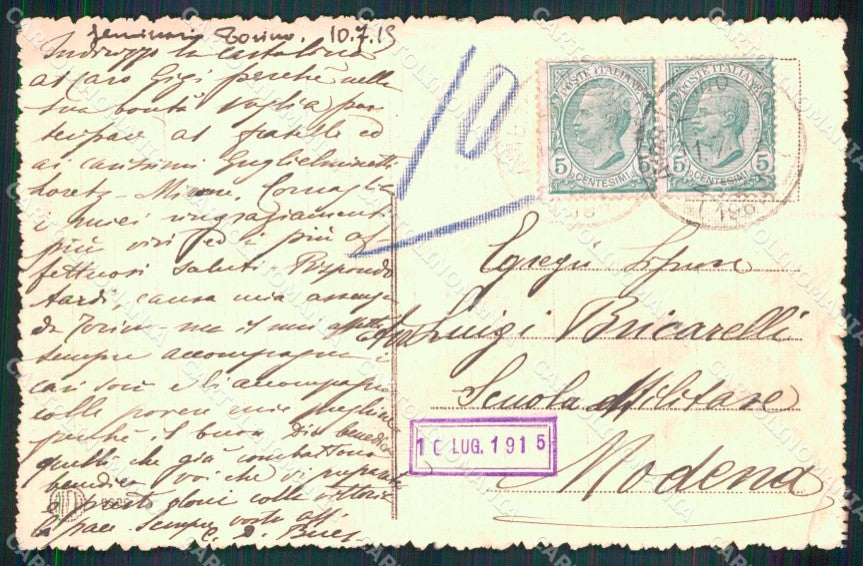 Seminario Torino. 10.7.15
Indirizzo la cartolina
al caro Gigi perchè nella
sua bontà voglia par
tecipare al fratello ed
ai carissimi Guglielminetti
i miei ringraziamenti
più vivi ed i più af
fettuosi saluti. Rispondo
tardi, causa mia assenza
da Torino - ma il mio affetto
sempre accompagna i
cari soci e li accompagna
colle povere mie preghiere
perchè il buon Dio benedica
quelli che già combattono
benedica voi che vi preparate
e presto glorî colla vittoria
la pace. Sempre vostro aff.
10
POSTE ITALIANE
5 5
CENTESIMI
POSTE ITALIANE
5 5
CENTESIMI
Egregio Signore
Luigi Bricarelli
Scuola Militare
Modena
10 LUG. 1915
CARTOLINOMANIA